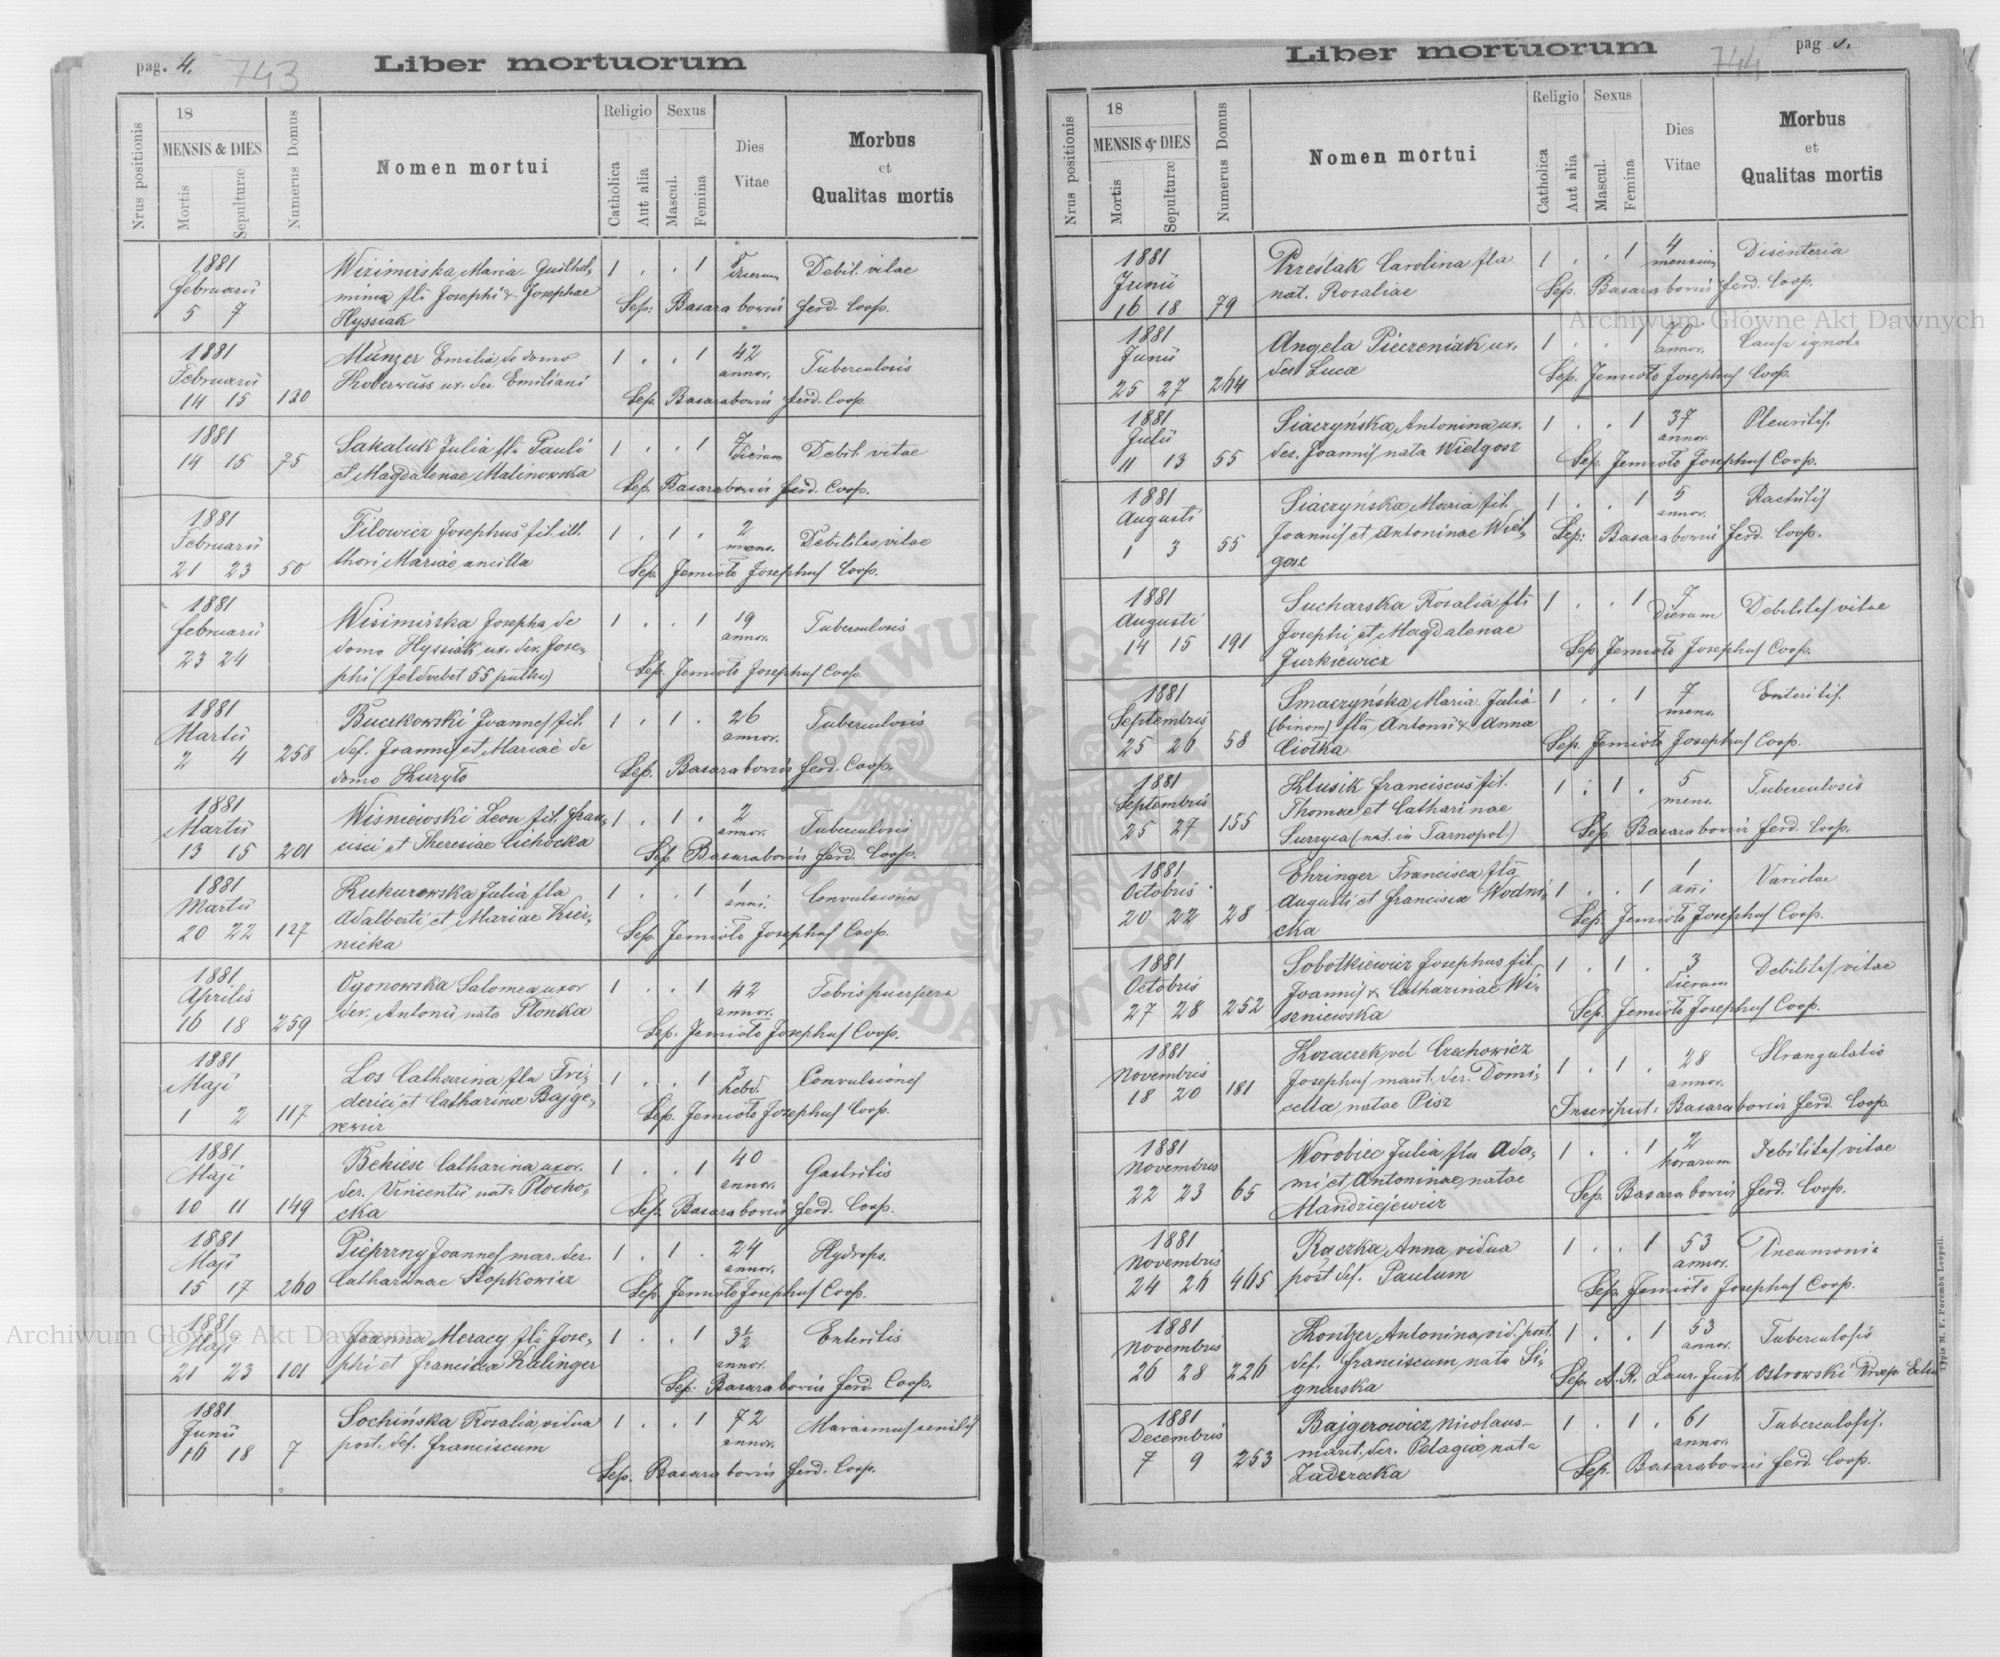 pag. 4.
743
Liber mortuorum
Nrus positionis
18
MENSIS & DIES
Mortis
Sepulturæ
Numerus Domus
Nomen mortui
Religio
Catholica
Aut alia
Sexus
Mascul.
Femina
Dies
Vitae
Morbus
et
Qualitas mortis
1881
Februarii
5 7
Wizimirska Maria Guilhel-
mina fla Josephi & Josephae
Hyssiak
1 . . 1
dierum
Debil. vitae
Sep: Basarabowicz Ferd. Coop.
1881
Februarii
14 15 130
Münzer Emilia, de domo
Koberweiss ux. der Emiliani
1 . . 1 42
annor.
Tuberculosis
Sep. Basarabowicz Ferd. Coop.
1881
14 15 75
Sakaluk Julia fla Pauli
et Magdalenae Malinowska
1 . . 1 7
dierum
Debil. vitae
Sep. Basarabowicz Ferd. Coop.
1881
Februarii
21 23 50
Filowicz Josephus fil. ill.
thori Mariae ancilla
1 . 1 . 2
mens.
Debilitas vitae
Sep. Jemioło Josephus Coop.
1881
Februarii
23 24
Wisimirska Josepha de
domo Hyssiak ux. der. Jose-
phi (feldvebel 55 pułku)
1 . . 1 19
annor.
Tuberculosis
Sep. Jemioło Josephus Coop.
1881
Martii
2 4 258
Buczkowski Joannes fil.
def. Joannis et Mariae de
domo Kuryło
1 . 1 . 26
annor.
Tuberculosis
Sep. Basarabowicz Ferd. Coop.
1881
Martii
13 15 201
Wisniewski Leon fil. Fran-
cisci et Theresiae Cichocka
1 . 1 . 2
annor.
Tuberculosis
Sep Basarabowicz Ferd. Coop.
1881
Martii
20 22 127
Kukurowska Julia fla
Adalberti et Mariae Kier-
nicka
1 . . 1 1
anni.
Convulsiones
Sep. Jemioło Josephus Coop.
1881
Aprilis
16 18 259
Ogonowska Salomea uxor
der. Antonii nata Płonka
1 . . 1 42
annor.
Febris puerpera
Sep: Jemioło Josephus Coop.
1881
Maji
1 2 117
Los Catharina fla Fri-
derici et Catharinae Bajge-
1 . . 1 3
hebd.
Convulsiones
Sep. Jemioło Josephus Coop.
1881
Maji
10 11 149
Bekiesz Catharina uxor.
der. Vincentii nata Płocho-
cka
1 . . 1 40
annor.
Gastritis
Sep. Basarabowicz Ferd. Coop.
1881
Maji
15 17 260
Pieprzny Joannes mar. der.
Catharinae Stopkowicz
1 . 1 . 24
annor.
Hydrops.
Sep. Jemioło Josephus Coop.
1881
Maji
21 23 101
Joanna Meracy fla Jose-
phi et Francisca Kalinger
1 . . 1 3½
annor.
Enteritis
Sep: Basarabowicz Ferd. Coop.
1881
Junii
16 18 7
Sochińska Rosalia, vidua
post. def. Franciscum
1 . . 1 72
annor.
Marasmus senilis
Sep. Basarabowicz Ferd. Coop.
Liber mortuorum
744
pag 5.
Nrus positionis
18
MENSIS & DIES
Mortis
Sepulturæ
Numerus Domus
Nomen mortui
Religio
Catholica
Aut alia
Sexus
Mascul.
Femina
Dies
Vitae
Morbus
et
Qualitas mortis
1881
Junii
16 18 79
Prześlak Carolina fla
nat. Rosaliae
1 . . 1 4
mensium
Disenteria
Sep. Basarabowicz Ferd. Coop.
1881
Junii
25 27 264
Angela Pieczeniak ux.
der Lucae
1 . . 1 70
annor.
Causa ignota
Sep. Jemioło Josephus Coop.
1881
Julii
11 13 55
Siaczyńska Antonina ux.
der. Joannis nata Wielgosz
1 . . 1 37
annor.
Pleuritis.
Sep. Jemioło Josephus Coop.
1881
Augusti
1 3 55
Siaczyńska Maria fil.
Joannis et Antoninae Wiel-
gosz
1 . . 1 5
annor.
Rachitis
Sep: Basarabowicz Ferd. Coop.
1881
Augusti
14 15 191
Sucharska Rosalia fla
Josephi et Magdalenae
Jurkiewicz
1 . . 1 7
Dierum
Debilitas vitae
Sep. Jemioło Josephus Coop.
1881
Septembris
25 26 58
Smaczyńska Maria Julia
(binom) fla Antonii & Anna
Ciołka
1 . . 1 7
mens.
Enteritis.
Sep. Jemioło Josephus Coop.
1881
Septembris
25 27 155
Klusik Franciscus fil.
Thomae et Catharinae
Surryca (nat. in Tarnopol)
1 . 1 . 5
mens.
Tuberculosis
Sep. Basarabowicz Ferd. Coop.
1881
Octobris
20 22 28
Ehringer Francisca fla
Augusti et Franciscae Wodni-
cka
1 . . 1 1
ani
Variolae
Sep. Jemioło Josephus Coop.
1881
Octobris
27 28 252
Sobotkiewicz Josephus fil.
Joannis & Catharinae Wi-
szniewska
1 . 1 . 3
dierum
Debilitas vitae
Sep. Jemioło Josephus Coop.
1881
Novembris
18 20 181
Kozaczek vel Czechowicz
Josephus marit. der. Domi-
cellae, natae Pisz
1 . 1 . 28
annor.
Strangulatio
Inscripsit: Basarabowicz Ferd. Coop.
1881
Novembris
22 23 65
Worobiec Julia fla Ada-
mi et Antoninae, natae
Mandziejewicz
1 . . 1 2
horarum
Debilitas vitae
Sep. Basarabowicz Ferd. Coop.
1881
Novembris
24 26 465
Raczka, Anna, vidua
post def. Paulum
1 . . 1 53
annor.
Pneumonia
Sep. Jemioło Josephus Coop.
1881
Novembris
26 28 226
Kontzer Antonina, vid. post.
def. Franciscum, nata Si-
gnarska
1 . . 1 53
annor.
Tuberculosis
Sep. A. R. Laur. Just. Ostrowski
1881
Decembris
7 9 253
Bajgerowicz, Nicolaus-
marit. der. Pelagiae, nata
Zaderecka
1 . 1 . 61
annor.
Tuberculosis.
Sep. Basarabowicz Ferd. Coop.
Typis M. F. Poremba Leopoli.
Archiwum Główne Akt Dawnych
Archiwum Główne Akt Dawnych